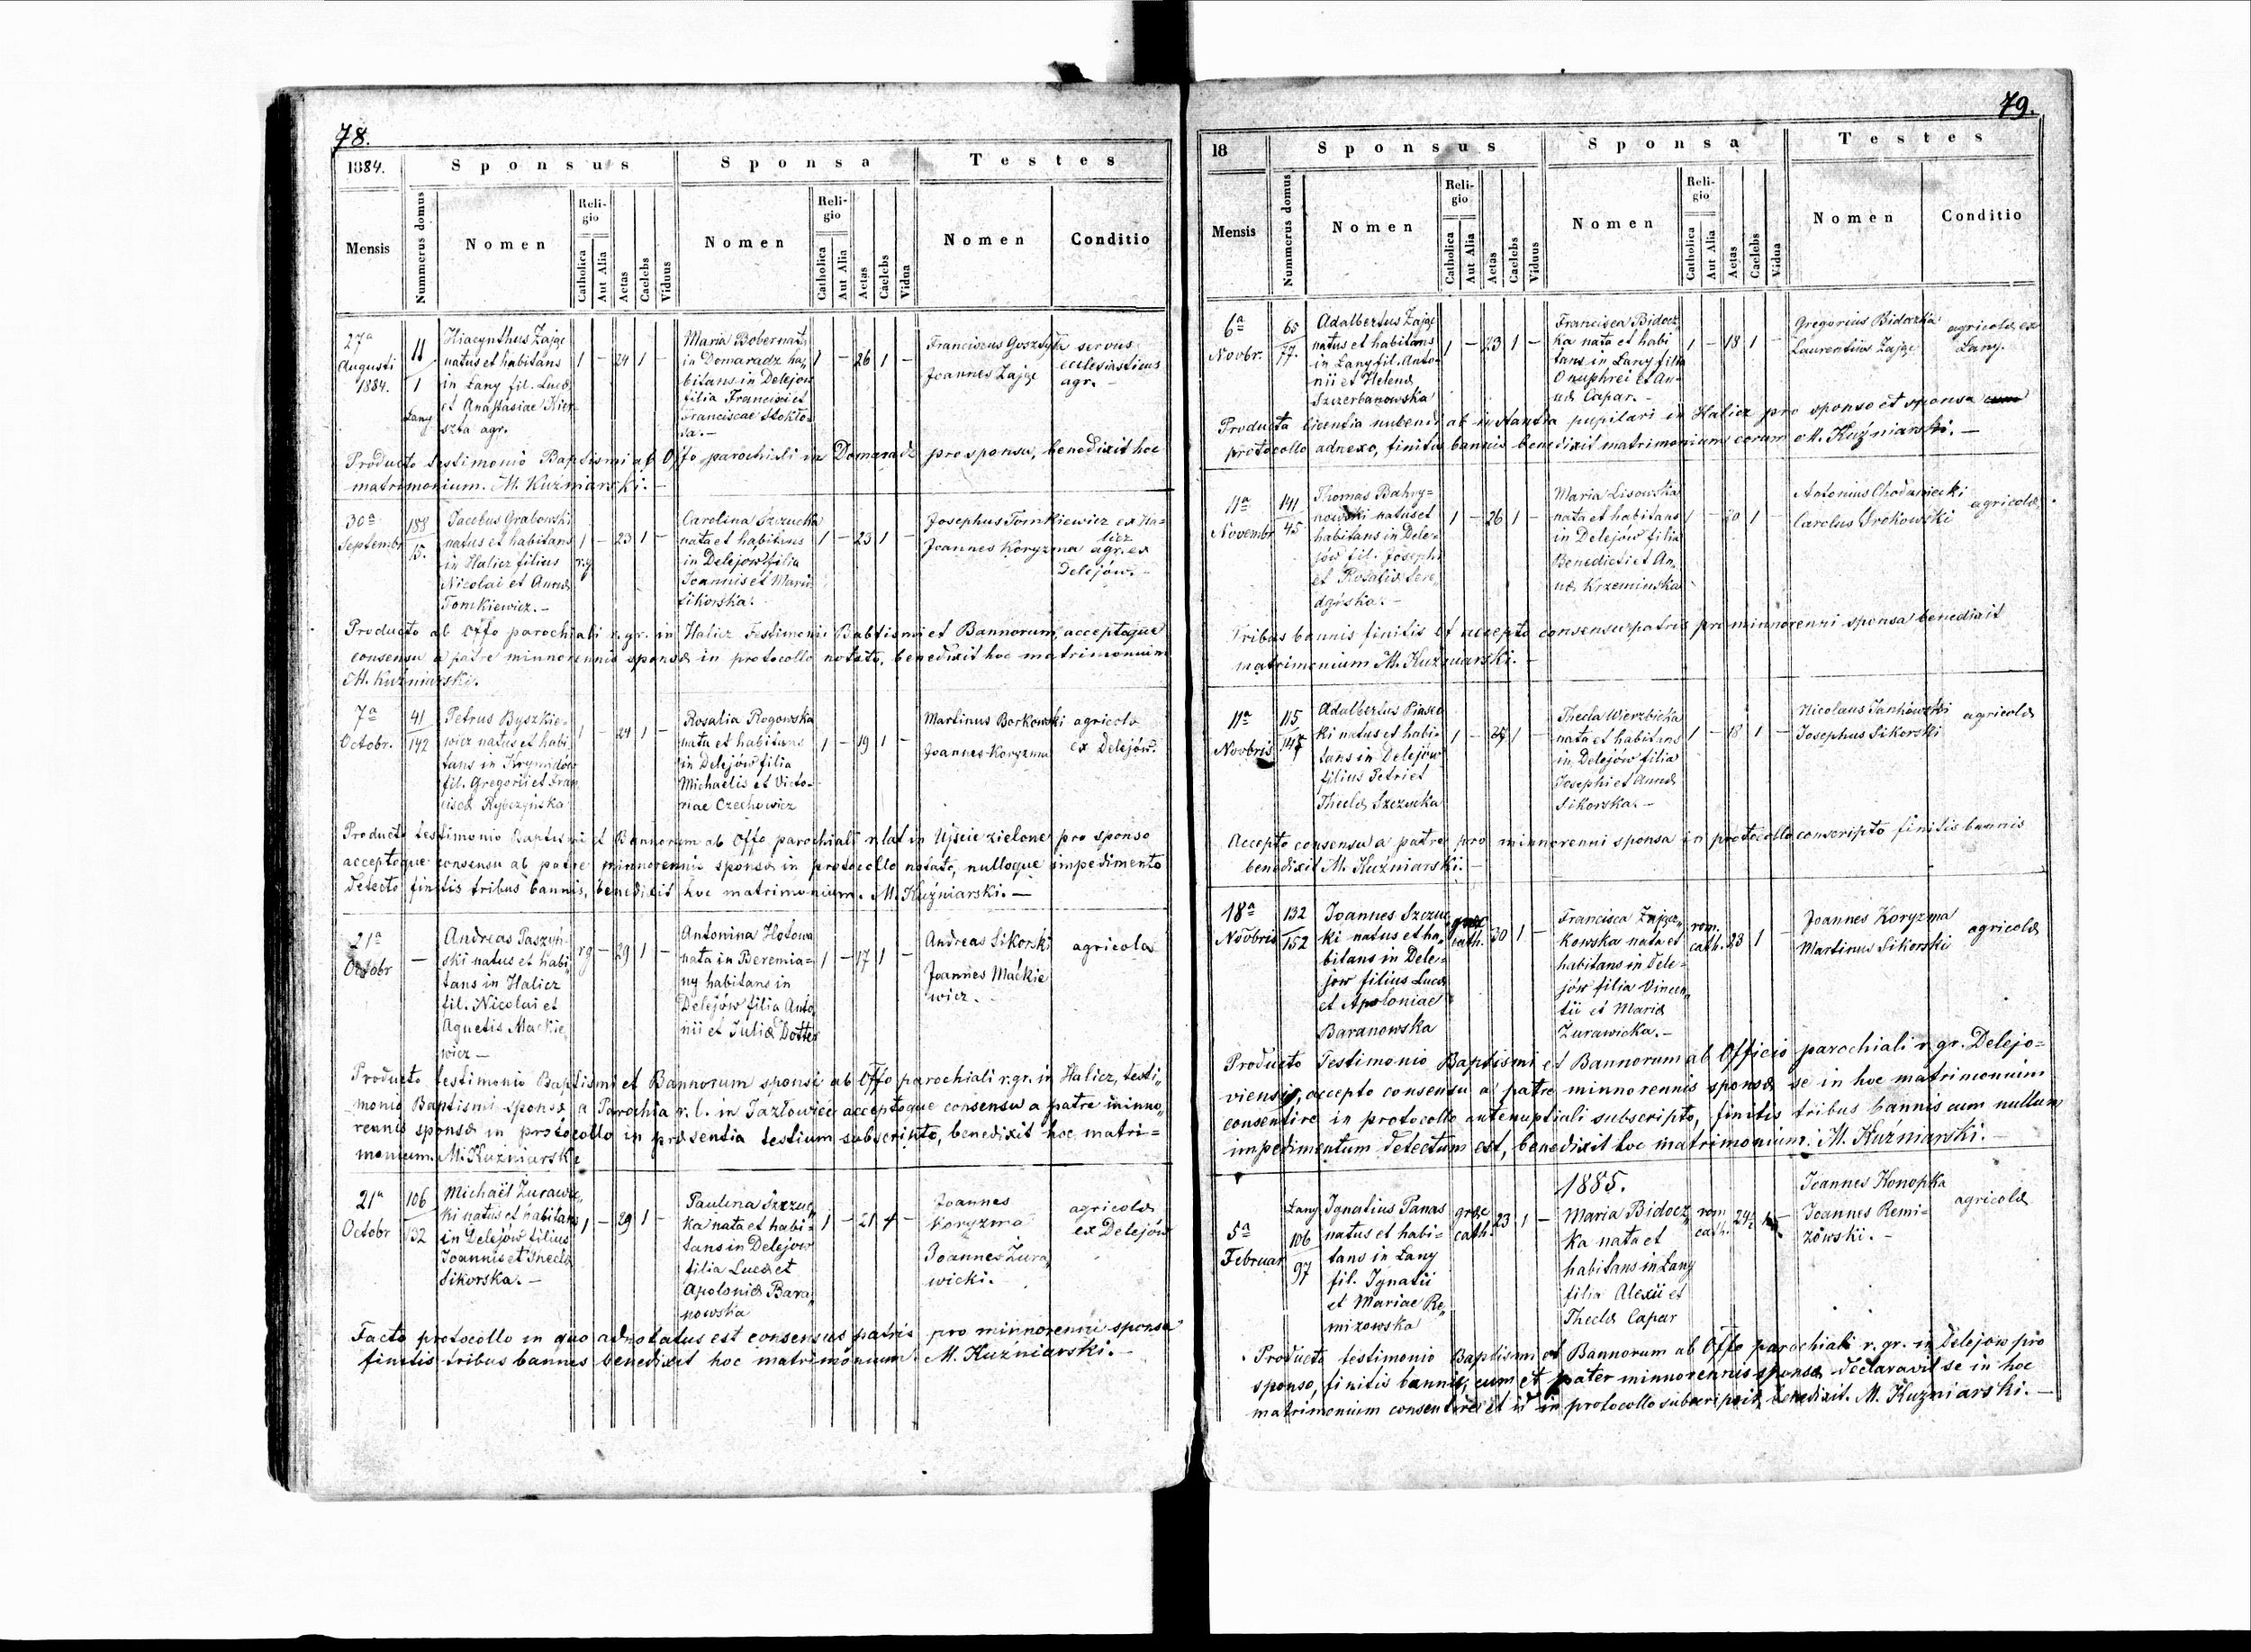 78.
1884.
Sponsus
Sponsa
Testes
Mensis
Nummerus domus
Nomen
Reli-
gio
Catholica
Aut Alia
Aetas
Caelebs
Viduus
Nomen
Reli-
gio
Catholica
Aut Alia
Aetas
Caelebs
Vidua
Nomen
Conditio
27a
Augusti
1884.
11
1
Łany
Hiacynthus Zając
natus et habitans
in Łany fil. Lucæ
et Anastasiae Kier-
szta agr.
1 - 24 1 -
Maria Bobernath
in Domaradz ha„
bitans in Delejow
filia Francisci et
Franciscae Stokło-
sa.-
1 - 26 1 -
Franciszus Gosztyła servus
ecclesiasticus
Joannes Zając agr. -
Producto testimonio Baptismi ab Offo parochiali in Domaradz pro sponsa, benedixit hoc
matrimonium. M. Kuźniarski. -
30a
Septembr
188
15.
Jacobus Grabowski
natus et habitans
in Halicz filius
Nicolai et Annæ
Tomkiewicz.-
1
r.g
- 23 1 -
Carolina Szczucka
nata et habitans
in Delejow filia
Joannis et Mariæ
Sikorska.
1 - 23 1 -
Josephus Tomkiewicz ex Ha-
licz
Joannes Koryzma agr. ex
Delejów. -
Producto ab Offo parochiali r.gr. in Halicz Testimonii Babtismi et Bannorum, acceptoque
consensu a patre minnorennis sponsæ in protocollo notato, benedixit hoc matrimonium
M. Kuźniarski.
7a
Octobr.
41
142
Petrus Byszkie-
wicz natus et habi„
tans in
fil. Gregorii et Fran
ciscæ Rybczyńska
1 - 24 1 -
Rosalia Rogowska
nata et habitans
in Delejów filia
Michaelis et Victo-
riae Czechowicz
1 - 19 1 -
Martinus Borkowski agricolæ
Joannes Koryzma ex Delejów.
Producto testimonio Baptismi et Bannorum ab Offo parochiali r.lat in Ujscie zielone pro sponso
acceptoque consensu ab patre minnorennis sponsæ in protocollo notato, nulloque impedimento
detecto finitis tribus bannis, benedixit hoc matrimonium. M. Kuźniarski. -
21a
Octobr
-
Andreas Paszyń-
ski natus et habi„
tans in Halicz
fil. Nicolai et
Agnetis Mackie
wicz -
rg - 29 1 -
Antonina Hołowa
nata in Beremia-
ny habitans in
Delejów filia Anto
nii et Juliæ Dotter
1 - 17 1 -
Andreas Sikorski
Joannes Mackie
wicz.
agricolæ
Producto testimonio Baptismi et Bannorum sponsi ab Offo parochiali r.gr. in Halicz, testi„
monio Baptismi sponsæ a Parochia r. l. in Jazłowiec acceptoque consensu a patre minno„
rennis sponsæ in protocollo in præsentia testium subscripto, benedixit hoc matri=
monium. M. Kuźniarski
21a
Octobr
106
132
Michaël Żurawic„
ki natus et habitans
in Delejów filius
Joannis et Theclæ
Sikorska. -
1 - 29 1 -
Paulina Szczuc„
ka nata et habi-
tans in Delejow
filia Lucæ et
Apoloniæ Bara„
nowska
1 - 21 1 -
Joannes
Koryzma
Joannes Żura„
wicki.
agricolæ
ex Delejów
Facto protocollo in quo adnotatus est consensus patris pro minnorenni sponsa
finitis tribus bannis benedixit hoc matrimonium. M. Kuźniarski. -
79.
18
Sponsus
Sponsa
Testes
Mensis
Nummerus domus
Nomen
Reli-
gio
Catholica
Aut Alia
Aetas
Caelebs
Viduus
Nomen
Reli-
gio
Catholica
Aut Alia
Aetas
Caelebs
Vidua
Nomen
Conditio
6a
Novbr.
65
77.
Adalbertus Zając
natus et habitans
in Łany fil. Anto-
nii et Helenæ
Szczerbanowska
1 - 23 1 -
Francisca Bidocz„
ka nata et habi
tans in Łany filia
Onuphrei et An-
næ Capar. -
1 - 18 1 -
Gregorius Bidoczka
Laurentius Zając
agricolæ ex
Łany.
Producta licentia nubendi ab instantia pupilari in Halicz pro sponso et sponsa
protocollo adnexo, finitis bannis benedixit matrimonium eorum M. Kuźniarski. -
11a
Novembr
141
45
Thomas Bahry=
nowski natus et
habitans in Dele=
jów fil. Josephi
et Rosaliæ
1 - 26 1 -
Maria Lisowska
nata et habitans
in Delejów filia
Benedicti et An„
næ Krzemińska
1 - 20 1 -
Antonius Chodaniecki
Carolus Grokowski
agricolæ
Tribus bannis finitis et accepto consensu patris pro minnorenni sponsa benedixit
matrimonium M. Kuźniarski. -
11a
Novbris
115
147
Adalbertus Piasec
ki natus et habi-
tans in Delejów
filius Petri et
Theclæ Szczucka
1 - 1 -
Thecla Wierzbicka
nata et habitans
in Delejów filia
Josephi et Annæ
Sikorska. -
1 - 18 1 -
Nicolaus Jankowski
Josephus Sikorski
agricolæ
Accepto consensu a patre pro minnorenni sponsa in protocollo conscripto finitis bannis
benedixit M. Kuźniarski. -
18a
Novbris
132
152
Joannes Szczuc
ki natus et ha„
bitans in Dele=
jow filius Lucæ
et Apoloniae
Baranowska
græc
cath.
30 1 -
Francisca Zającz„
kowska nata et
habitans in Dele-
jów filia Vincen„
tii et Mariæ
Żurawicka. -
rom.
cath.
23 1 -
Joannes Koryzma
Martinus Sikorski
agricolæ
Producto Testimonio Baptismi et Bannorum ab Officio parochiali r. gr. Delejo=
viensis, accepto consensu a patre minnorennis sponsæ se in hoc matrimonium
consentire in protocollo antenuptiali subscripto, finitis tribus bannis cum nullum
impedimentum detectum est, benedixit hoc matrimonium. M. Kuźniarski. -
1885.
5a
Februar
Łany
106
97
Ignatius Panas
natus et habi=
tans in Łany
fil. Ignatii
et Mariae Re„
mizowska
græc
cath.
23 1 -
Maria Bidocz„
ka nata et
habitans in Łany
filia Alexii et
Theclæ Capar
rom
cath.
Joannes Konopka
Joannes Remi-
zowski. -
agricolæ
Producto testimonio Baptismi et Bannorum ab Offo parochiali r. gr. in Delejow pro
sponso, finitis bannis, cum et pater minnorennis sponsæ declaravit se in hoc
matrimonium consentire et id in protocollo subscripsit, benedixit. M. Kuźniarski. -